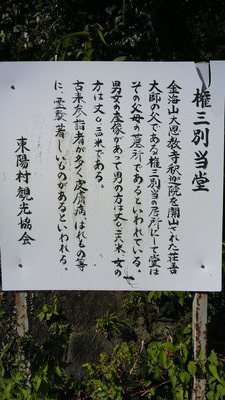 権三別当堂
金海山大恩教寺釈迦院を開山された荘吉
大師の父である権三別当の居所にして堂は
その父母の墓所であるといわれている。
男女の座像があって男の方は丈〇.三六米、女の
方は丈〇.三米である。
古来参詣者が多く皮膚病、はれもの等
に、霊験著しいものがあるといわれる。
東陽村観光協会